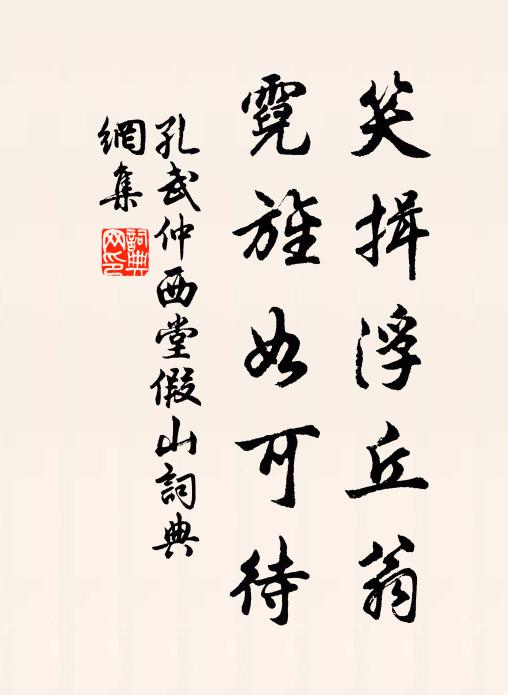 笑揖浮丘翁
霓旌如可待
孔武仲西堂假山詞典
網集
詞典网印